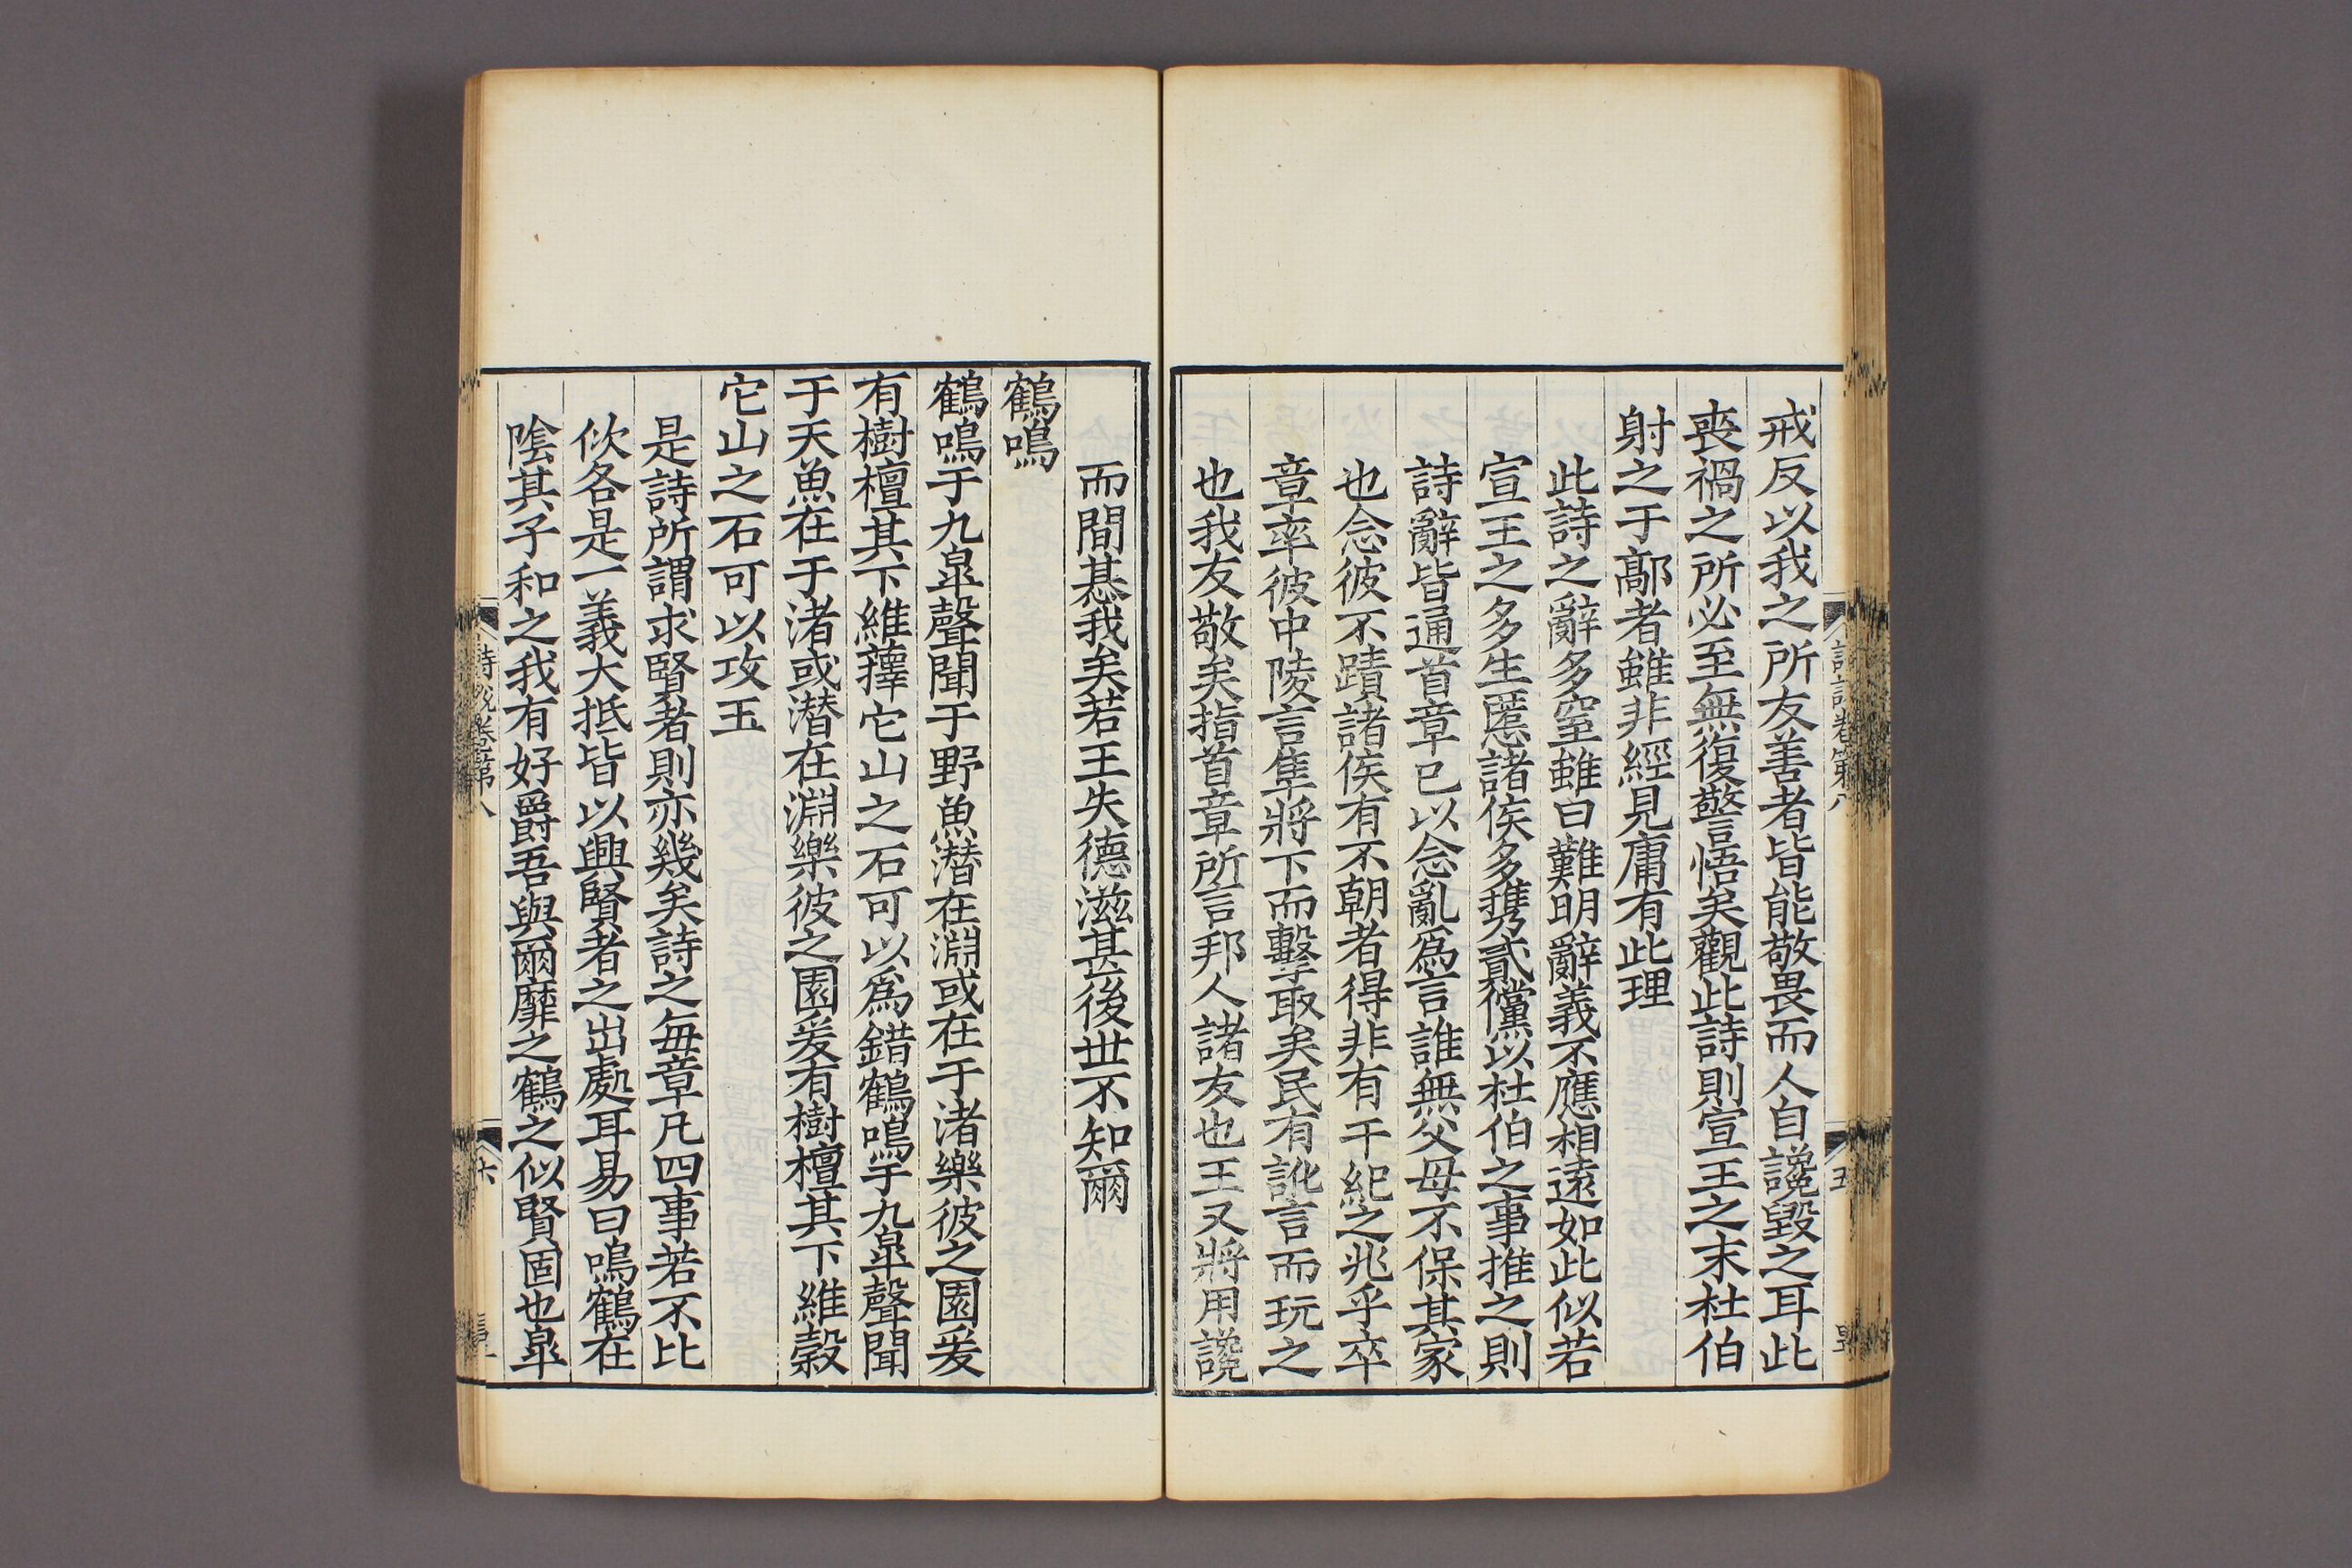 戒反以我之所友善者皆能敬畏而人自讒毀之耳此
喪禍之所必至無復警悟矣觀此詩則宣王之末杜伯
射之于鄗者雖非經見庸有此理
此詩之辭多窒雖曰難明辭義不應相遠如此似若
宣王之多生慝諸侯多攜貳儻以杜伯之事推之則
詩辭皆通首章已以念亂為言誰無父母不保其家
也念彼不蹟諸侯有不朝者得非有干紀之兆乎卒
章率彼中陵言隼將下而擊取矣民有訛言而玩之
也我友敬矣指首章所言邦人諸友也王又將用讒
而間惎我矣若王失德滋甚後世不知爾
鶴鳴
鶴鳴于九皐聲聞于野魚潛在淵或在于渚樂彼之園爰
有樹檀其下維蘀它山之石可以為錯鶴鳴于九皐聲聞
于天魚在于渚或潛在淵樂彼之園爰有樹檀其下維榖
它山之石可以攻玉
是詩所謂求賢者則亦幾矣詩之每章凡四事若不比
佽各是一義大抵皆以興賢者之出處耳易曰鳴鶴在
陰其子和之我有好爵吾與爾靡之鶴之似賢固也皐
詩說卷第八
六